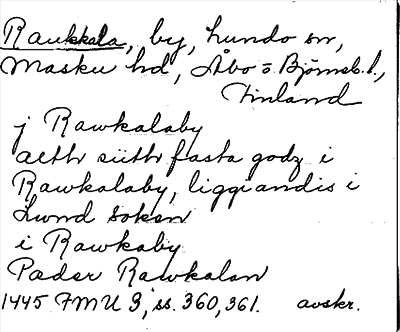 Raukkala, by, Lundo sn,
Masku hd, Åbo o Björneb. l.,
Finland
j Rawkalaby
alth sith fasta godz i
Rawkalaby, liggiandis i
Lund soken
i Rawkaby
Pæder Rawkalan
1445 FMU 3, ss. 360, 361. avskr.